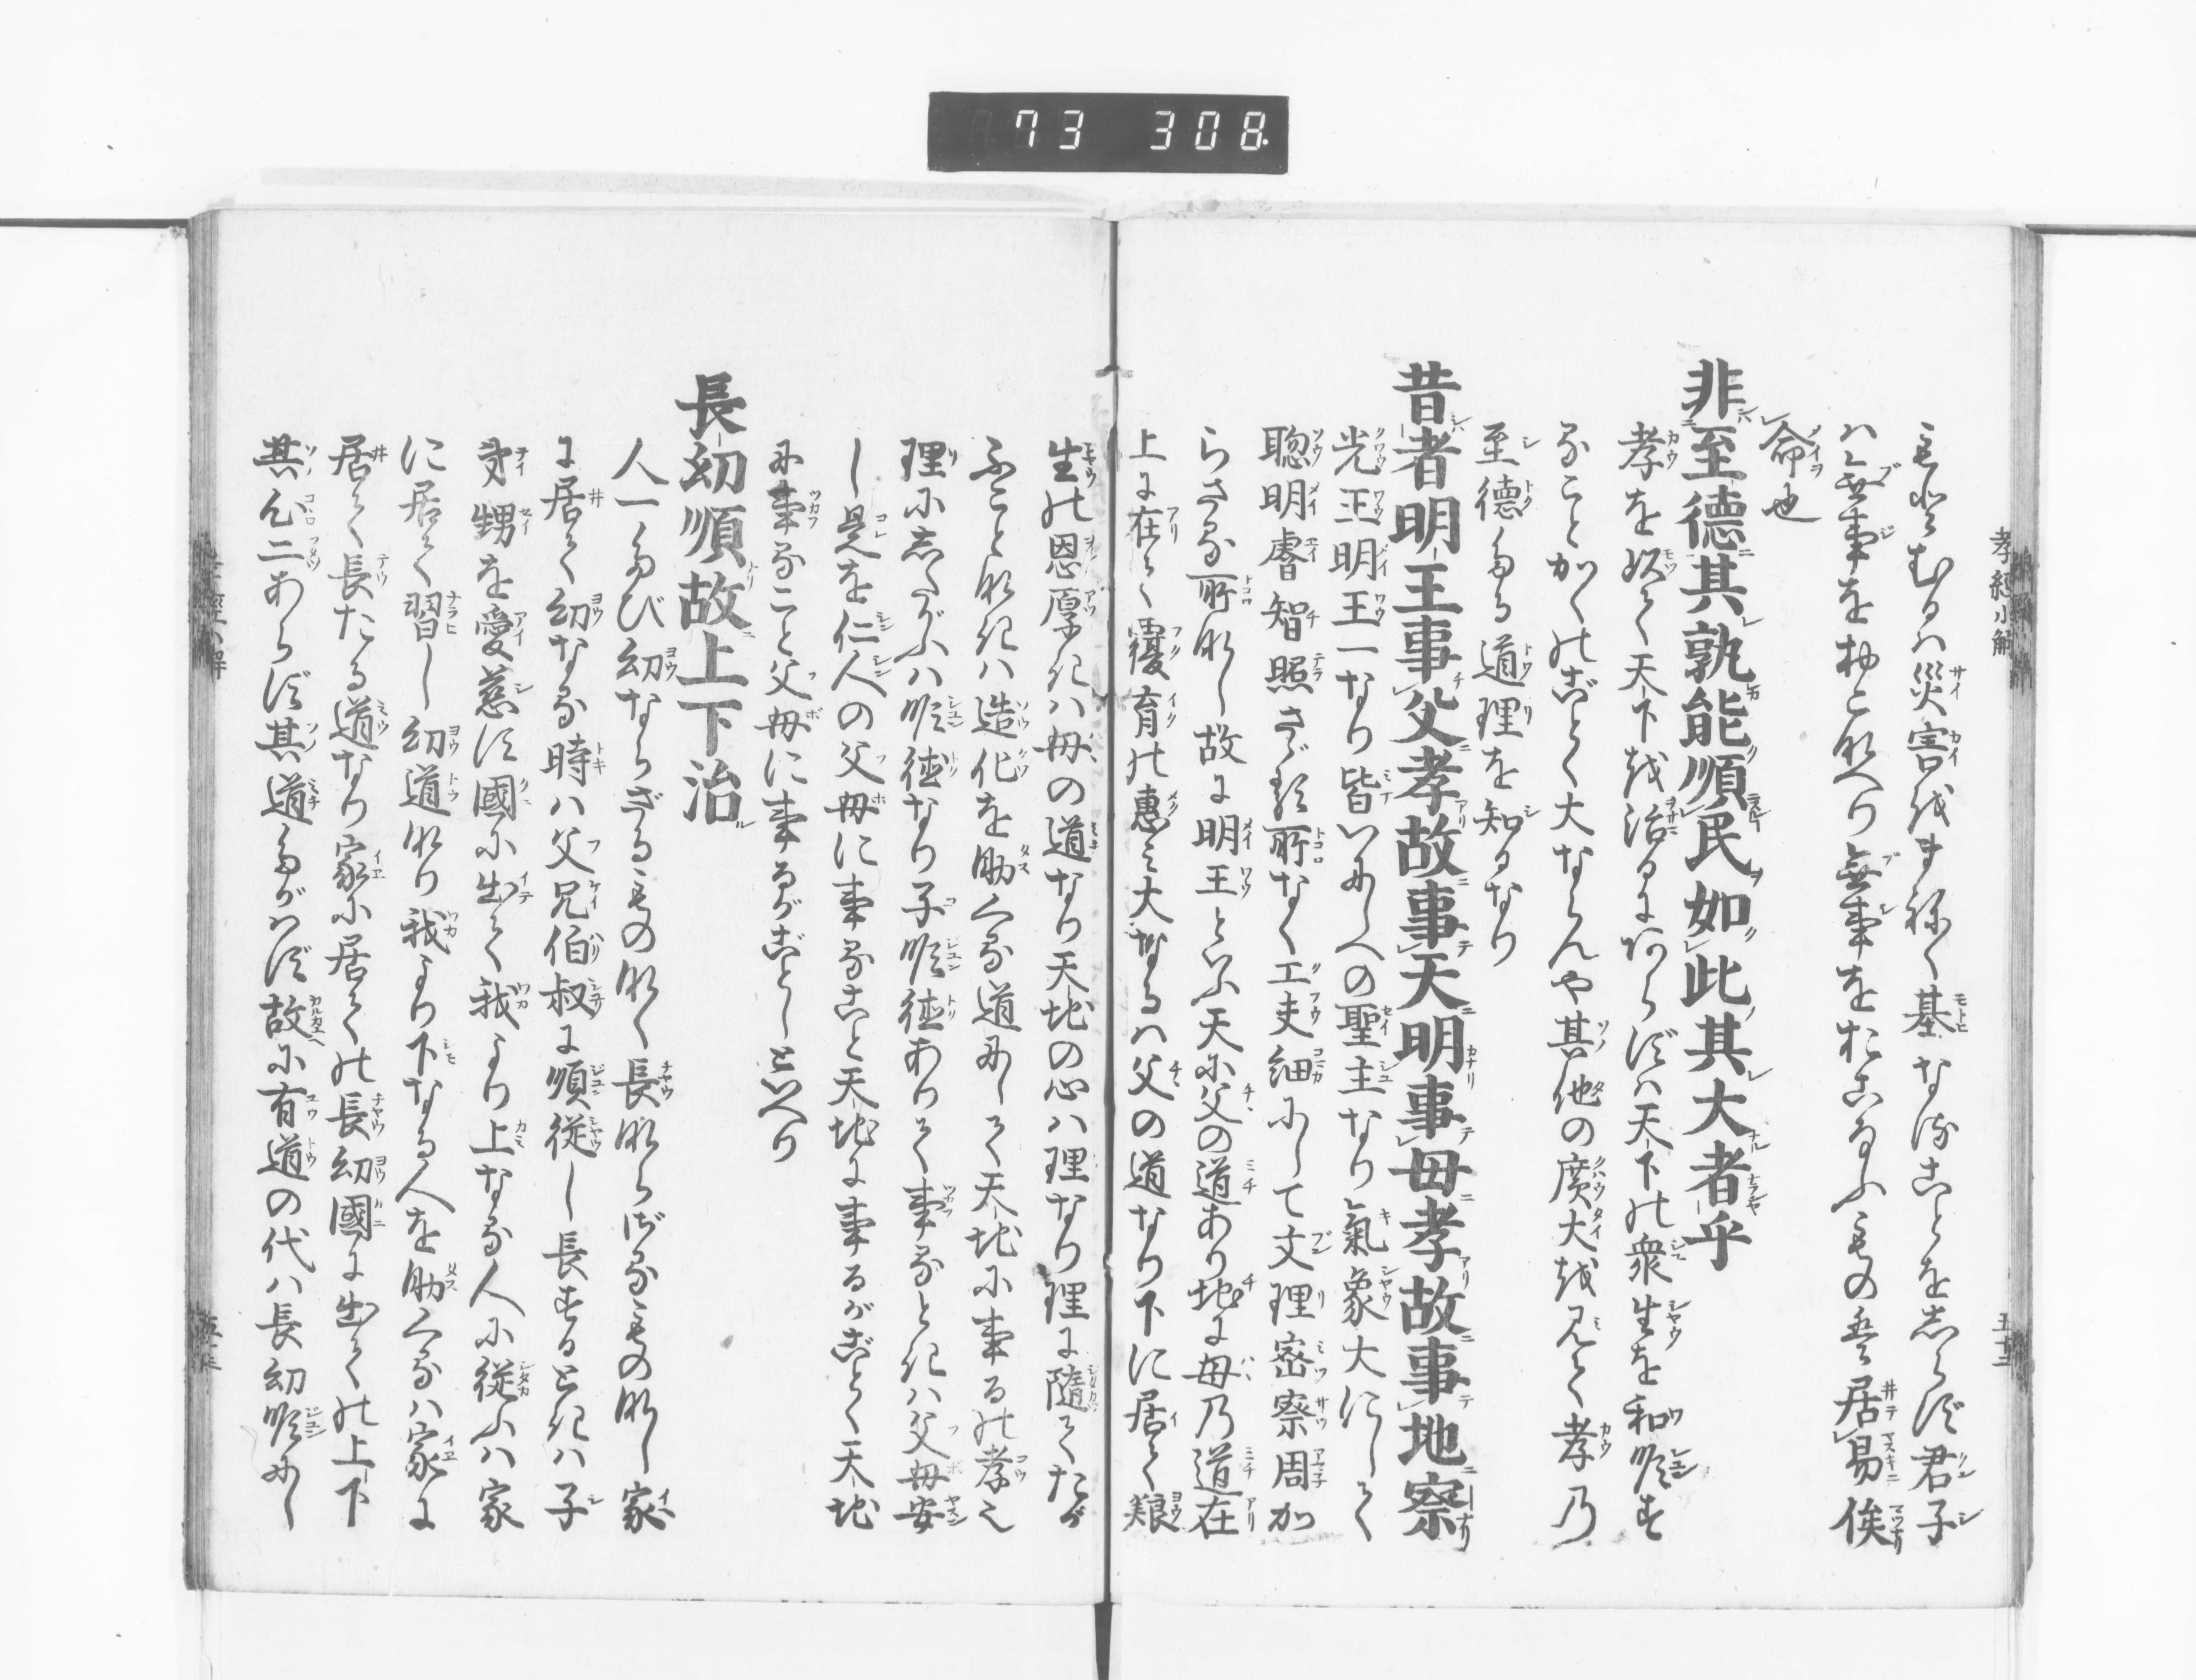 73 308.
孝經小解
五十二
もとむるハ災害をまねく基なることをしらず君子
ハ無事をおこなへり無事をおこなふもの是居易俟
命也
非至德其孰能順民如此其大者乎
孝を以て天下を治るにあらずハ天下の衆生を和順す
ることかくのごとく大ならんや其他の廣大を見て孝乃
至德たる道理を知るなり
昔者明王事父孝故事天明事母孝故事地察
光王明王一なり皆いにしへの聖主なり氣象大にして
聰明睿智照さゞる所なく工夫細にして文理密察周か
らざる所なし故に明王といふ天に父の道あり地に母乃道在
上に在て覆育の惠ミ大なるハ父の道なり下に居て
生の恩厚きハ母の道なり天地の心ハ理なり理に隨てたが
ふことなきハ造化を助くる道にして天地に事るの孝也
理にしたがふハ順德なり子順德ありて事るときハ父母安
し是を仁人の父母に事ること天地に事るがごとく天地
に事ること父母に事るがごとしといへり
長幼順故上下治
人一たび幼ならざるものなく長ならざるもの なし家
に居て幼なる時ハ父兄伯叔に順従し長するときハ子
弟甥を愛慈す國に出て我より上なる人に従ふハ家
に居て習し幼道なり我より下なる人を助くるハ家に
居て長たる道なり家に居ての長幼國に出ての上下
其心二あらず其道たがハず故に有道の代ハ長幼順にし